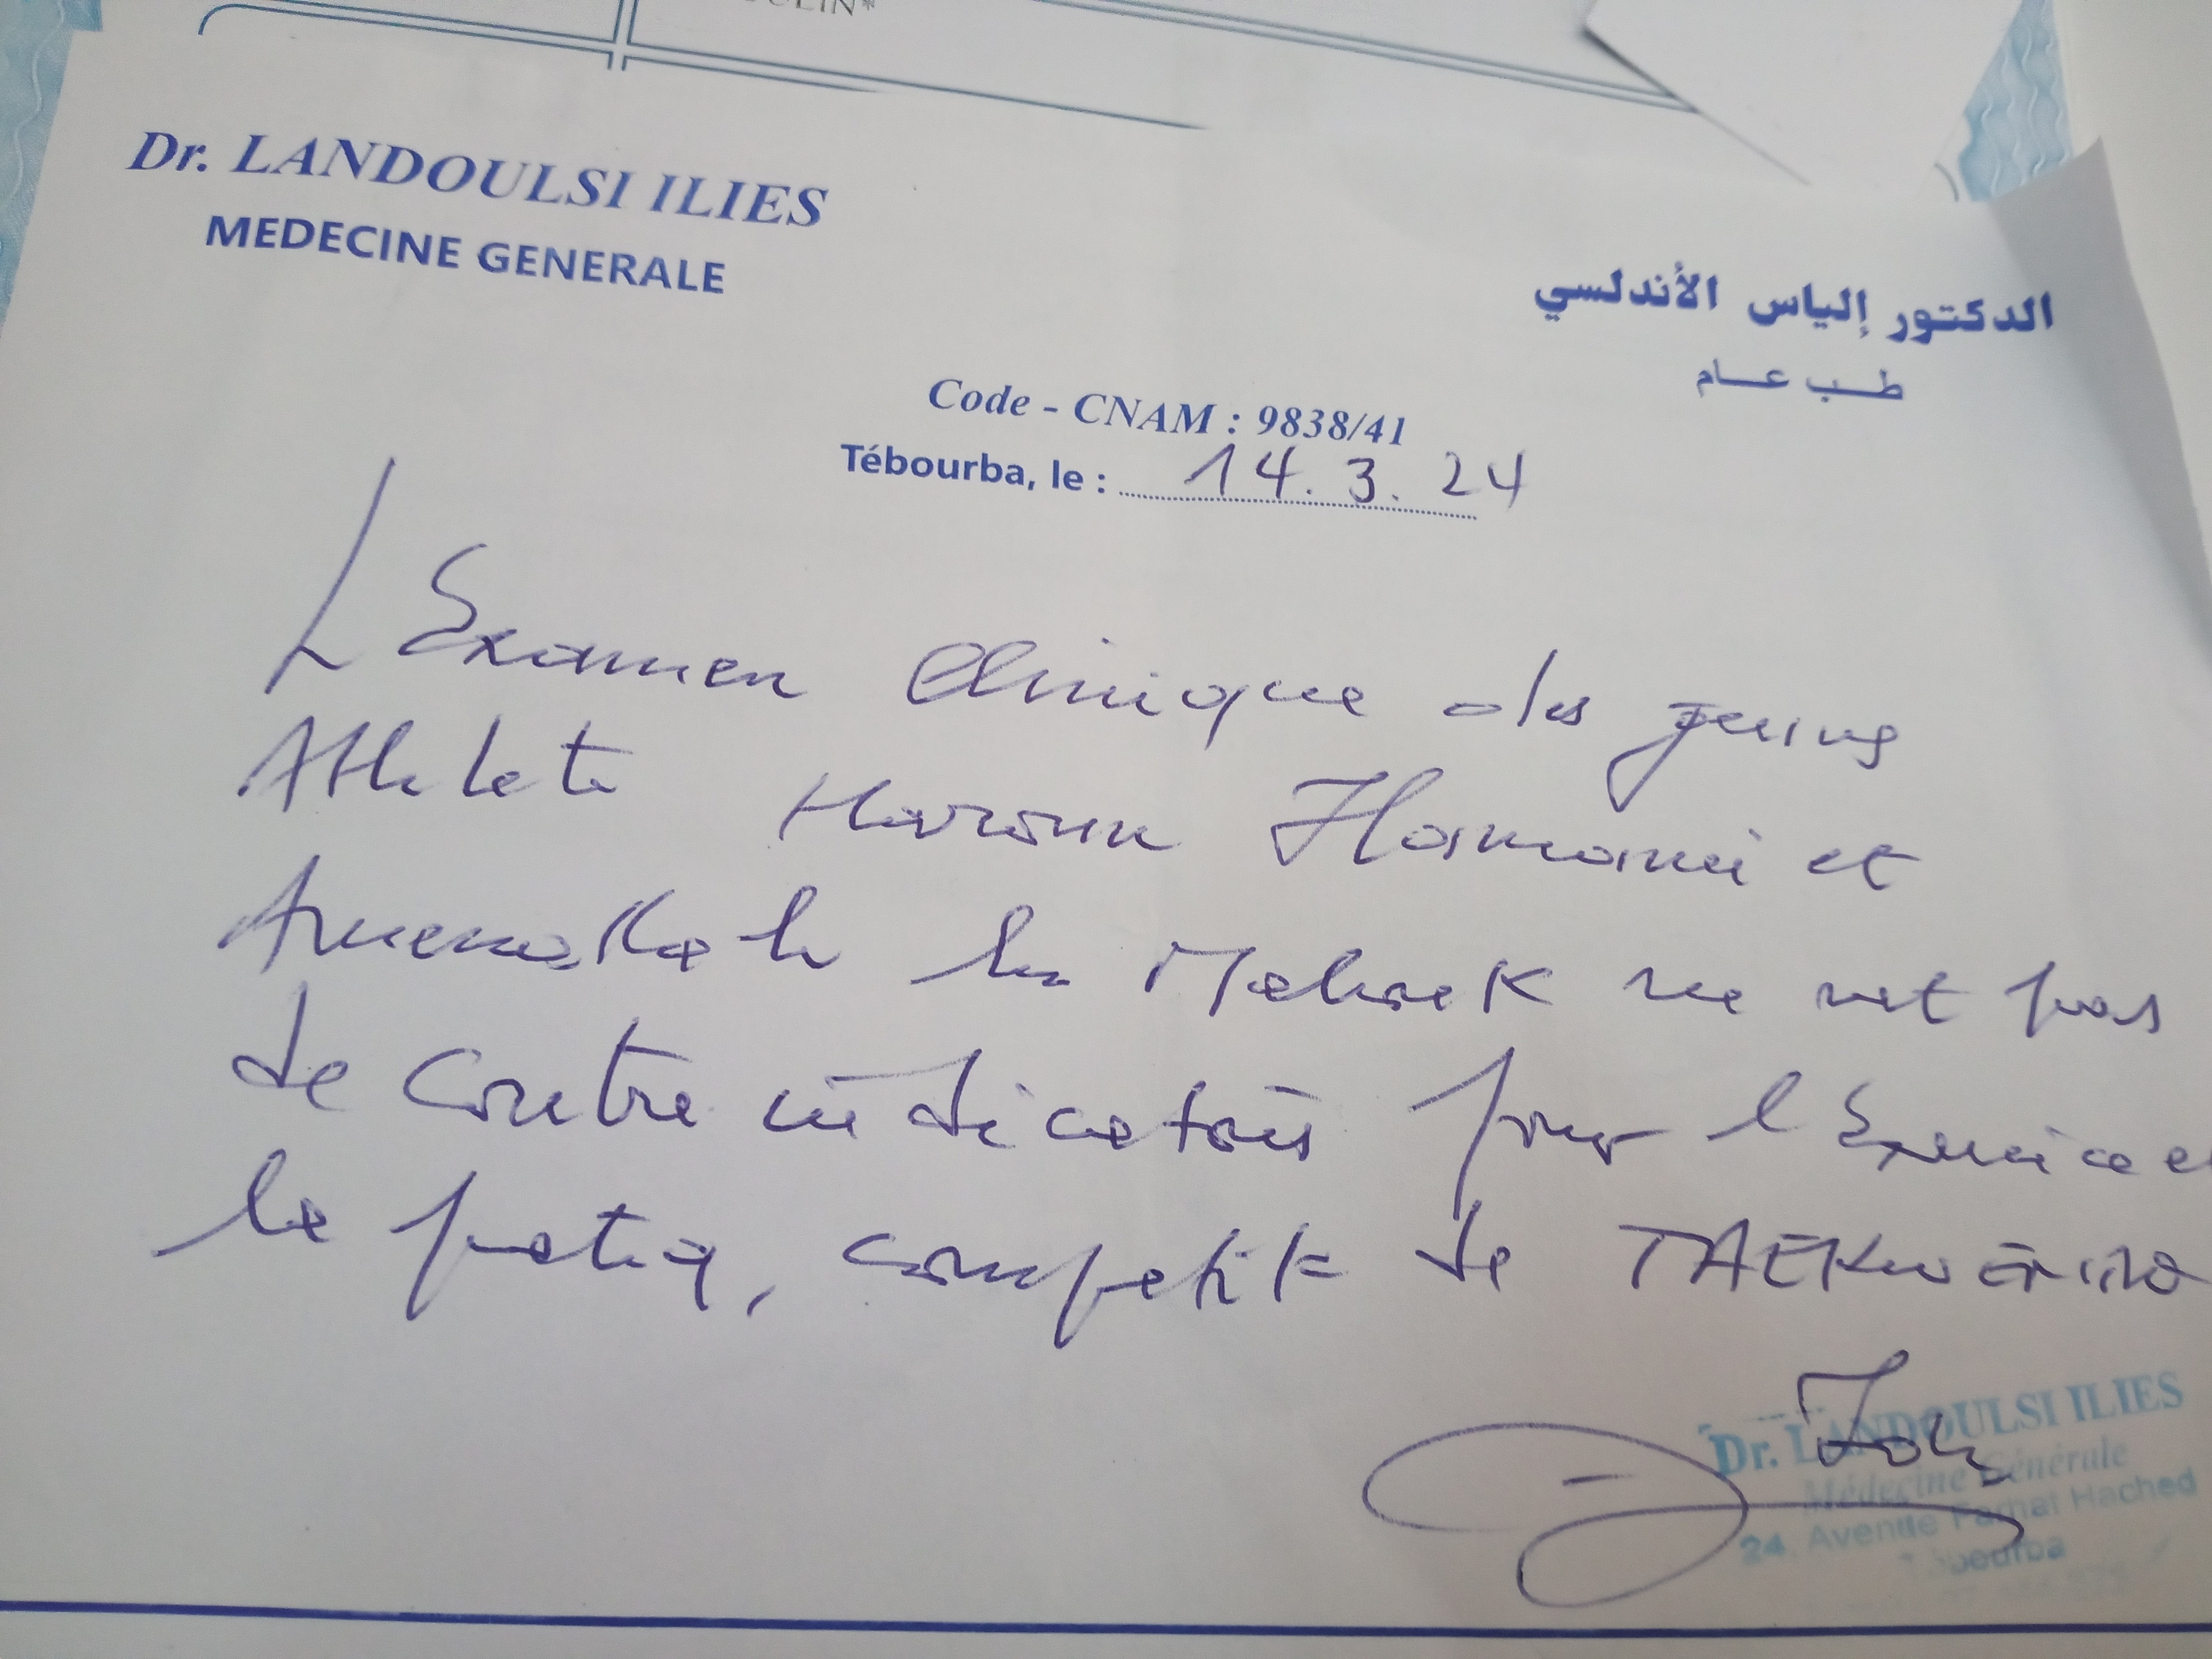 Dr. LANDOULSI ILIES
MEDECINE GENERALE
الدكتور إلياس الأندلسي
طب عام
Code - CNAM : 9838/41
Tébourba, le : 14.3.24
L'Examen Clinique des jeunes
Athlete Haroun Hamami et
ben Mabrouk ne met pas
de contre indication pour l'Exercice et
la pratiq, competit de TAEKWENDO
Dr. LANDOULSI ILIES
Médecine Générale
24, Avenue Farhat Hached
Tébourba